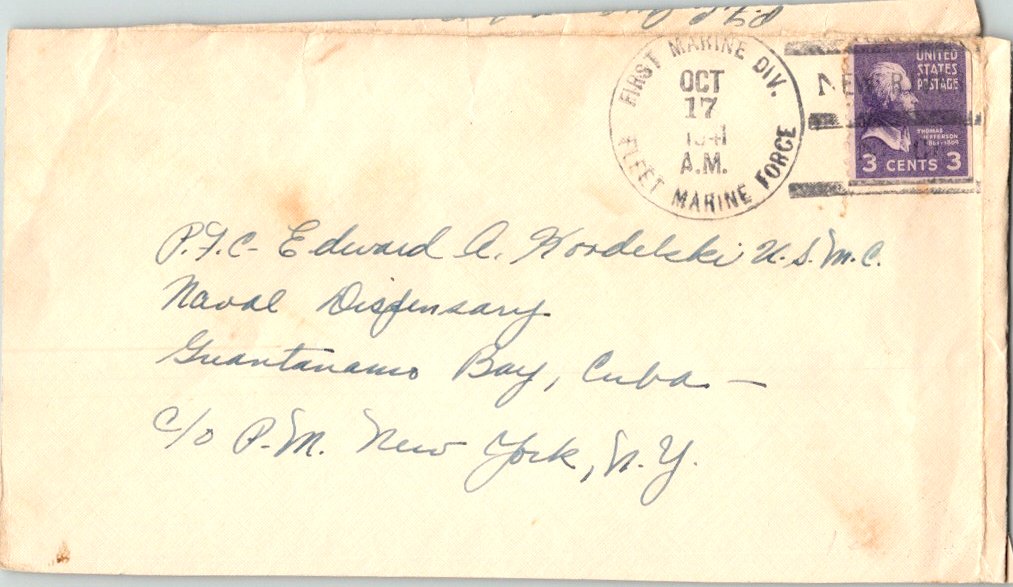 FIRST MARINE DIV.
OCT
17
1941
A.M.
FLEET MARINE FORCE
NEW
UNITED
STATES
POSTAGE
THOMAS
JEFFERSON
1801-1809
3 CENTS 3
P.F.C- Edward A. Kordelski U.S.M.C.
Naval Dispensary
Guantanamo Bay, Cuba —
c/o P.M. New York, N.Y.